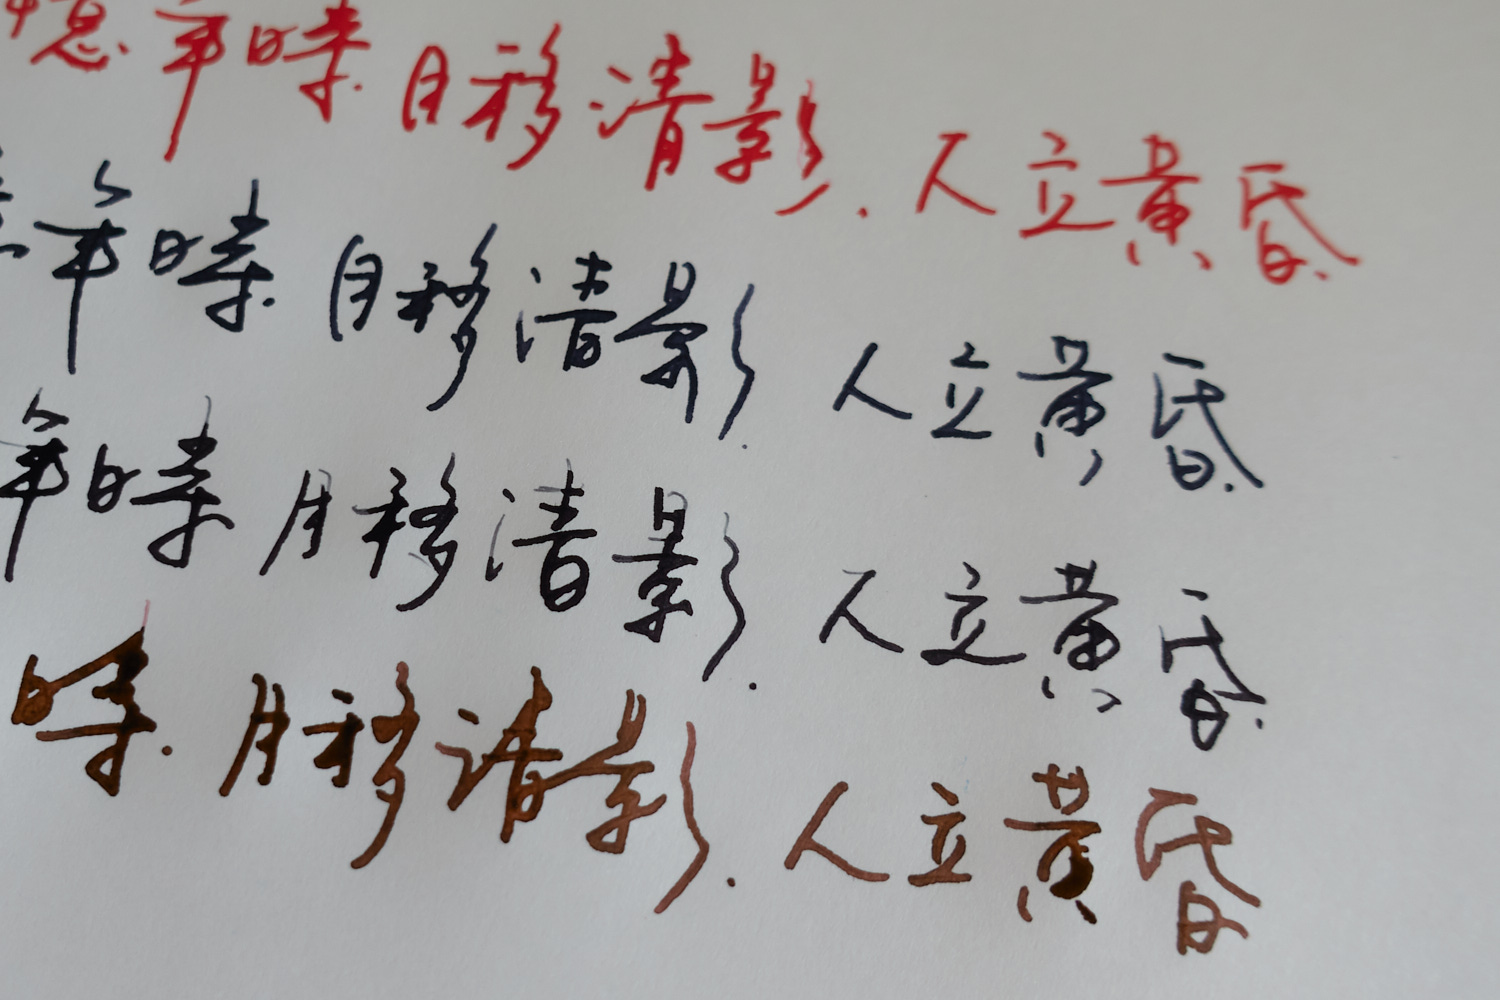 憶年時 月移清影.人立黃昏
年時 月移清影.人立黃昏
年時 月移清影.人立黃昏
時.月移清影.人立黃昏